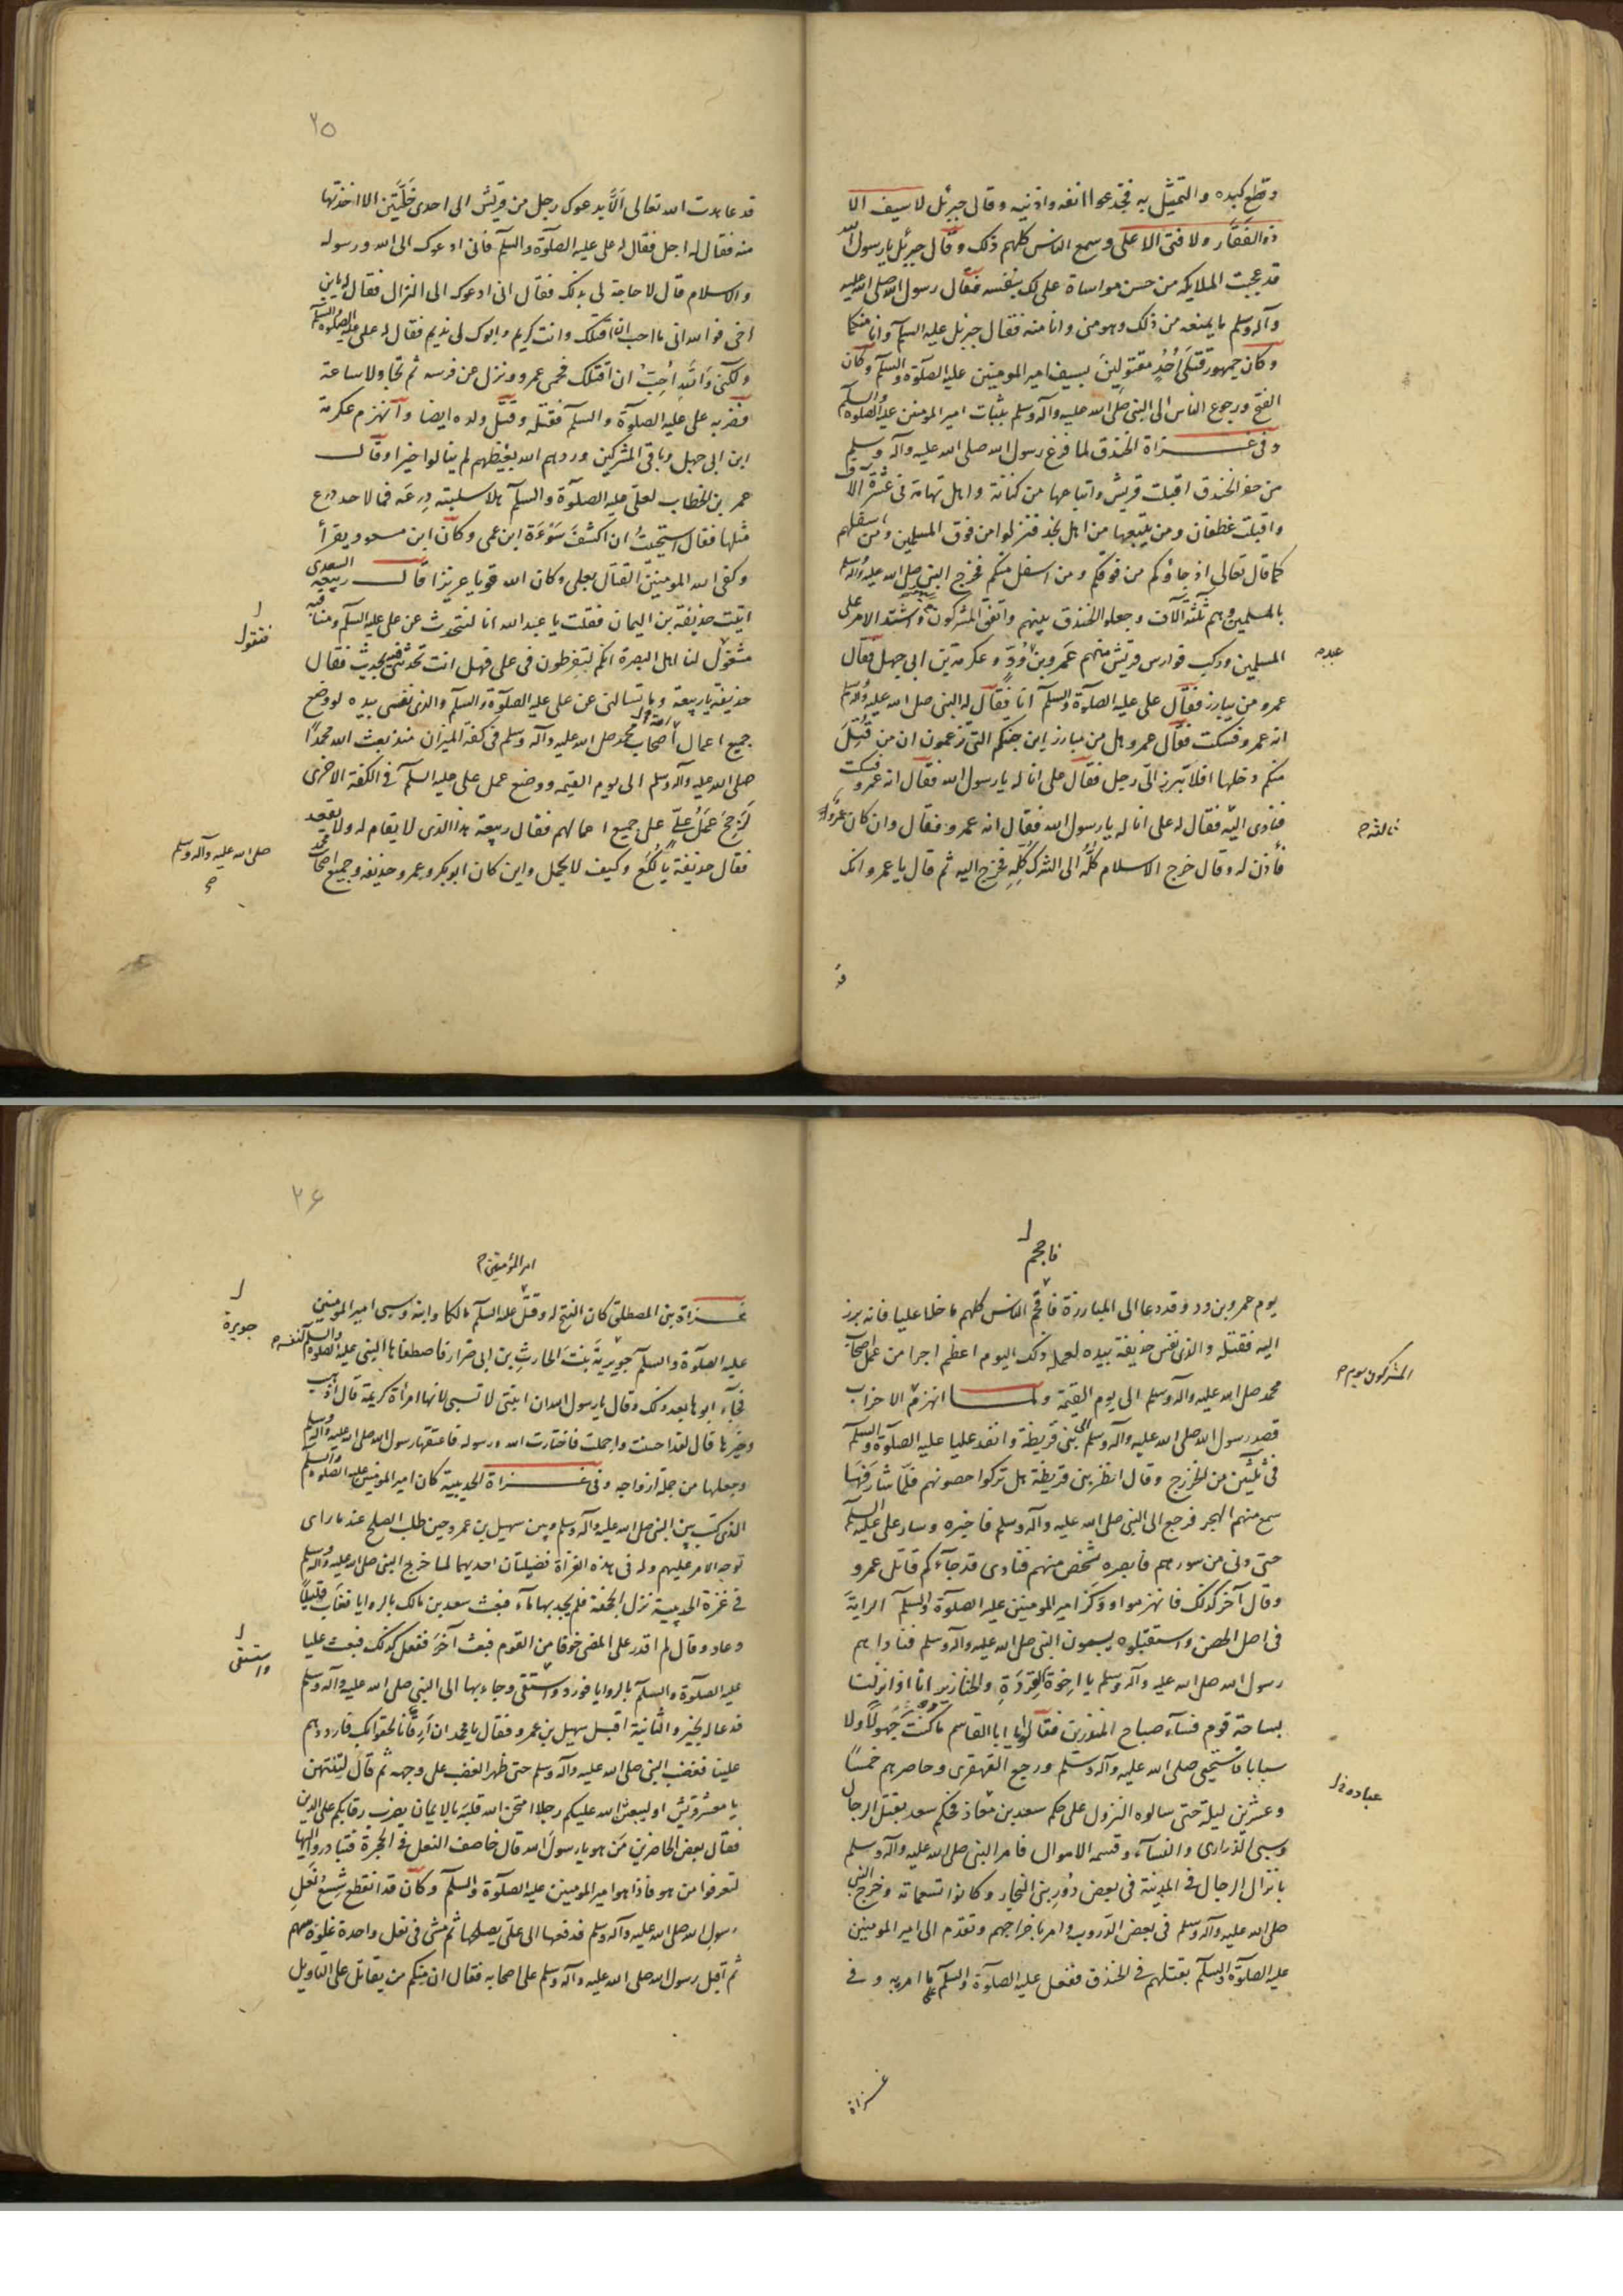 وقطع كبده والتمثيل به فجدعوا انفه واذنيه وقال جبرئيل لا سيف الا
ذو الفقار ولا فتى الا على وسمع الناس كلهم ذلك وقال جبرئيل يا رسول الله
قد عجبت الملايكه من حسن مواساة على لك بنفسه فقال رسول الله صلى الله عليه
وآله وسلم ما يمنعه من ذلك وهو منى وانا منه فقال جبرئيل عليه السلم وانا منكما
وكان جمهور قتلى احد مقتولين بسيف امير المومنين عليه الصلوة والسلم وكان
الفتح ورجوع الناس الى النبى صلى الله عليه وآله وسلم بثبات امير المومنين عليه الصلوة والسلم
وفى غزاة الخندق لما فرغ رسول الله صلى الله عليه وآله وسلم
من حفر الخندق اقبلت قريش واتباعها من كنانة واهل تهامة فى عشرة آلاف
واقبلت غطفان ومن يتبعها من اهل نجد فنزلوا من فوق المسلمين ومن اسفلهم
كما قال تعالى اذ جاؤكم من فوقكم ومن اسفل منكم فخرج النبى صلى الله عليه وآله وسلم
بالمسلمين وهم ثلثة آلاف وجعلوا الخندق بينهم واتفق المشركون واشتد الامر على
المسلمين وركب فوارس قريش منهم عمرو بن ود وعكرمة بن ابى جهل فقال
عبد م
عمرو من يبارز فقال على عليه الصلوة والسلم انا فقال له النبى صلى الله عليه وآله وسلم
انه عمرو فسكت فقال عمرو هل من مبارز اين جنتكم التى تزعمون ان من قتل
منكم دخلها افلا يبرز الى رجل فقال على انا له يا رسول الله فقال انه عمرو فسكت
فنادى الثالثة فقال له على انا له يا رسول الله فقال انه عمرو فقال وان كان عمروا
ثالثه م
فأذن له وقال خرج الاسلام كله الى الشرك كله فخرج اليه ثم قال يا عمرو انك
قد
٢٥
قد عاهدت الله تعالى الا يدعوك رجل من قريش الى احدى خلتين الا اخذتها
منه فقال له اجل فقال له على عليه الصلوة والسلم فانى ادعوك الى الله ورسوله
والاسلام قال لا حاجة لى بذلك فقال انى ادعوك الى النزال فقال له يابن
اخى فوالله انى ما احب ان اقتلك وانت كريم وابوك لى نديم فقال له على عليه الصلوة والسلم
ولكنى والله احب ان اقتلك فحمى عمرو ونزل عن فرسه ثم تجاولا ساعة
فضربه على عليه الصلوة والسلم فقتله وقتل ولده ايضا وانهزم عكرمة
ابن ابى جهل وباقى المشركين وردهم الله بغيظهم لم ينالوا خيرا وقال
عمر بن الخطاب لعلى عليه الصلوة والسلم هلا سلبته درعه فما لاحد درع
مثلها فقال استحييت ان اكشف سوءة ابن عمى وكان ابن مسعود يقرأ
وكفى الله المومنين القتال بعلى وكان الله قويا عزيزا قال ربيعة السعدى
اتيت حذيفة بن اليمان فقلت يا عبد الله انا لنتحدث عن على عليه السلم ومناقبه
فيقول
فيقول لنا اهل البصرة انكم لتفرطون فى على فهل انت تحدثنى فيه بحديث فقال
حذيفة يا ربيعة وما تسالنى عن على عليه الصلوة والسلم والذى نفسى بيده لو وضع
جميع اعمال اصحاب محمد صلى الله عليه وآله وسلم فى كفة الميزان منذ بعث الله محمدا
صلى الله عليه وآله وسلم الى يوم القيمه ووضع عمل على عليه السلم فى الكفة الاخرى
لرجح عمل على على جميع اعمالهم فقال ربيعة هذا الذى لا يقام له ولا يقعد
فقال حذيفة يا لكع وكيف لا يحمل واين كان ابو بكر وعمر وحذيفه وجميع اصحاب محمد
صلى الله عليه وآله وسلم
فاحجم
يوم عمرو بن ود وقد دعا الى المبارزة فاحجم الناس كلهم ما خلا عليا فانه برز
اليه فقتله والذى نفس حذيفة بيده لعمله ذلك اليوم اعظم اجرا من عمل اصحاب
محمد صلى الله عليه وآله وسلم الى يوم القيمة ولما انهزم الاحزاب
المشركون يوم م
قصد رسول الله صلى الله عليه وآله وسلم الى بنى قريظة وانفذ عليا عليه الصلوة والسلم
فى ثلثين من الخزرج وقال انظر بنى قريظة هل تركوا حصونهم فلما شارفها
سمع منهم الهجر فرجع الى النبى صلى الله عليه وآله وسلم فاخبره وسار على عليه السلم
حتى دنى من سورهم فابصره شخص منهم فنادى قد جآءكم قاتل عمرو
وقال آخر كذلك فانهزموا وركز امير المومنين عليه الصلوة والسلم الراية
فى اصل الحصن واستقبلوه يسبون النبى صلى الله عليه وآله وسلم فناداهم
رسول الله صلى الله عليه وآله وسلم يا اخوة القردة والخنازير انا اذا نزلنا
بساحة قوم فسآء صباح المنذرين فقالوا يا ابا القاسم ما كنت جهولا ولا
سبابا فاستحيى صلى الله عليه وآله وسلم ورجع القهقرى وحاصرهم خمسا
وعشرين ليلة حتى سالوه النزول على حكم سعد بن معاذ فحكم سعد بقتل الرجال
وسبى الذرارى والنسآء وقسمه الاموال فامر النبى صلى الله عليه وآله وسلم
بانزال الرجال فى المدينة فى بعض دور بنى النجار وكانوا تسعماته وخرج النبى
صلى الله عليه وآله وسلم فى بعض الدروب وامر باخراجهم وتقدم الى امير المومنين
عليه الصلوة والسلم بقتلهم فى الخندق ففعل عليه الصلوة والسلم ما امر به وفى
غزاة
٢۶
امير المؤمنين م
غزاة بن المصطلق كان الفتح له وقتل عليه السلم مالكا وابنه وسبى امير المومنين
عليه الصلوة والسلم جويرية بنت الحارث بن ابى ضرار فاصطفاها النبى عليه الصلوة والسلم لنفسه م
جويرة
فجآء ابوها بعد ذلك وقال يا رسول الله ان ابنتى لا تسبى لانها امرأة كريمة قال اذهب
وخيرها قال لقد احسنت واجملت فاختارت الله ورسوله فاعتقها رسول الله صلى الله عليه وآله وسلم
وجعلها من جملة ازواجه وفى غزاة الحديبية كان امير المومنين عليه الصلوة والسلم
الذى كتب بين النبى صلى الله عليه وآله وسلم وبين سهيل بن عمرو حين طلب الصلح عند ما راى
توجه الامر عليهم وله فى هذه الغزاة فضيلتان احديهما لما خرج النبى صلى الله عليه وآله وسلم
فى غزة الحديبية نزل الجحفة فلم يجد بها مآء فبعث سعد بن مالك بالروايا فغاب قليلا
وعاد وقال لم اقدر على المضى خوفا من القوم فبعث آخر ففعل كذلك فبعث عليا
واستقى
عليه الصلوة والسلم بالروايا فورد واستقى وجاء بها الى النبى صلى الله عليه وآله وسلم
فدعا له بخير والثانية اقبل سهيل بن عمرو فقال يا محمد ان ارقانا لحقوا بك فارددهم
علينا فغضب النبى صلى الله عليه وآله وسلم حتى ظهر الغضب على وجهه ثم قال لتنتهن
يا معشر قريش او ليبعثن الله عليكم رجلا امتحن الله قلبه بالايمان يضرب رقابكم على الدين
فقال بعض الحاضرين من هو يا رسول الله قال خاصف النعل فى الحجرة فتبادروا اليها
لتعرفوا من هو فاذا هو امير المومنين عليه الصلوة والسلم وكان قد انقطع شسع نعل
رسول الله صلى الله عليه وآله وسلم فدفعها الى على يصلحها ثم مشى فى نعل واحدة غلوة سهم
ثم اقبل رسول الله صلى الله عليه وآله وسلم على اصحابه فقال ان منكم من يقاتل على التاويل